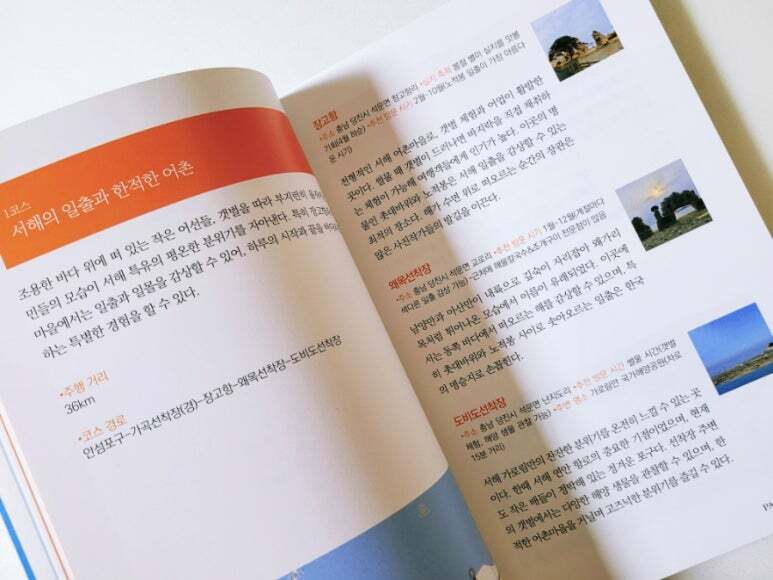 1코스
서해의 일출과 한적한 어촌
조용한 바다 위에 떠 있는 작은 어선들, 갯벌을 따라 부지런히
민들의 모습이 서해 특유의 평온한 분위기를 자아낸다. 특히 장고항
마을에서는 일출과 일몰을 감상할 수 있어, 하루의 시작과 끝을
하는 특별한 경험을 할 수 있다.
•주행 거리
36km
•코스 경로
안섬포구-가곡선착장(경)-장고항-왜목선착장-도비도선착장
장고항
•주소 충남 당진시 석문면 장고항리 •실치 축제 봄철 별미 실치를 맛볼
기회(4월 하순) •추천 방문 시기 2월~10월(노적봉 일출이 가장 아름다
운 시기)
전형적인 서해 어촌마을로, 갯벌 체험과 어업이 활발한
곳이다. 썰물 때 갯벌이 드러나면 바지락을 직접 채취하
는 체험이 가능해 여행객들에게 인기가 높다. 이곳의 명
물인 촛대바위와 노적봉은 서해 일출을 감상할 수 있는
최적의 장소다. 해가 수면 위로 떠오르는 순간의 장관은
많은 사진작가들의 발길을 이끈다.
왜목선착장
•주소 충남 당진시 석문면 교로리 •추천 방문 시기 1월~12월(계절마다
색다른 일출 감상 가능) •근처에 해물칼국수&조개구이 전문점이 많음
남양만과 아산만이 내륙으로 깊숙이 자리잡아 왜가리
목처럼 튀어나온 모습에서 이름이 유래되었다. 이곳에
서는 동쪽 바다에서 떠오르는 해를 감상할 수 있으며, 특
히 촛대바위와 노적봉 사이로 솟아오르는 일출은 한국
의 명승지로 손꼽힌다.
도비도선착장
•주소 충남 당진시 석문면 난지도리 •추천 방문 시간 썰물 시간(갯벌
체험, 해양 생물 관찰 가능) •주변 명소 가로림만 국가해양공원(차로
15분 거리)
서해 가로림만의 잔잔한 분위기를 온전히 느낄 수 있는 곳
이다. 한때 서해 연안 항로의 중요한 기점이었으며, 현재
도 작은 배들이 정박해 있는 정겨운 포구다. 선착장 주변
의 갯벌에서는 다양한 해양 생물을 관찰할 수 있으며, 한
적한 어촌마을을 거닐며 고즈넉한 분위기를 즐길 수 있다.